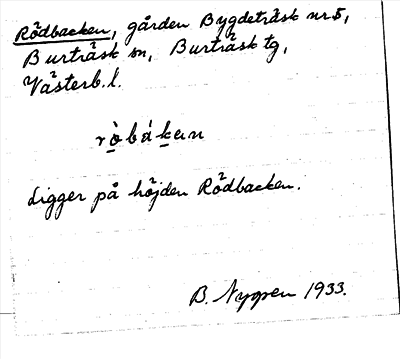 Rödbacken, gården Bygdeträsk nr 5,
Burträsk sn, Burträsk tg,
Västerb. l.
rò̱báḵan
Ligger på höjden Rödbacken.
B. Nygren 1933.